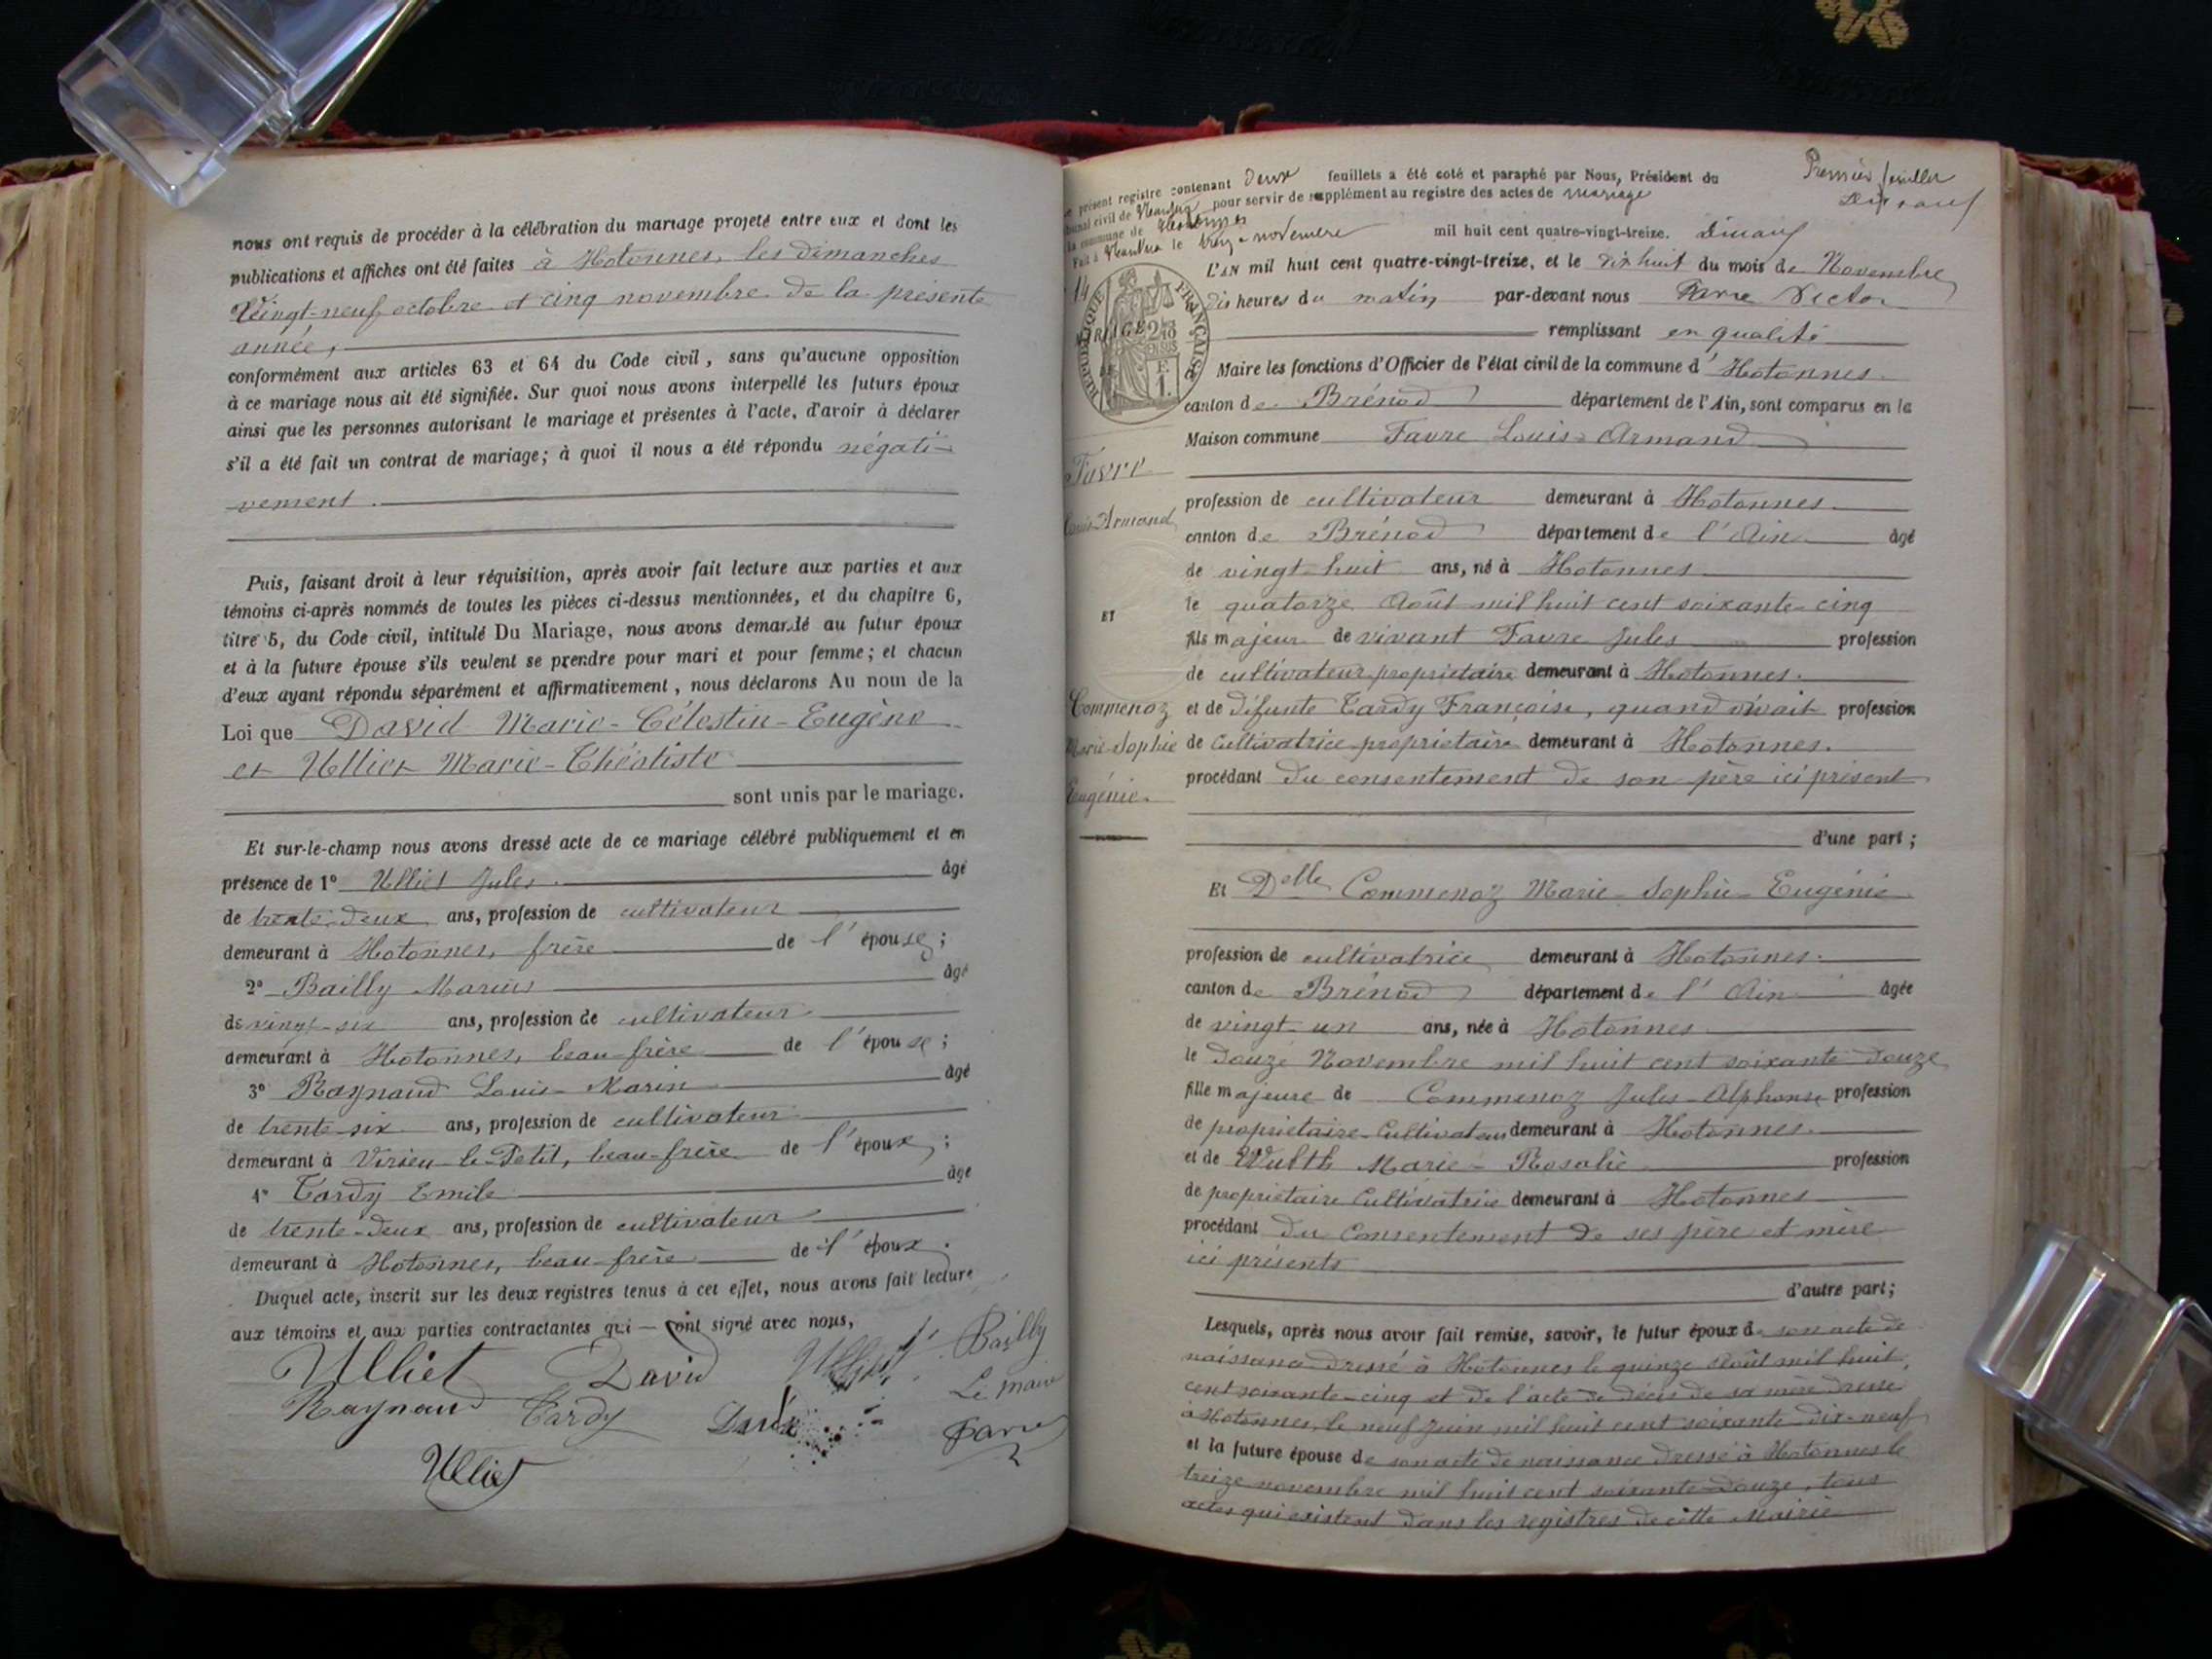 nous ont requis de procéder à la célébration du mariage projeté entre eux et dont les
publications et affiches ont été faites à Hotonnes, les dimanches
Vingt-neuf octobre et cinq novembre de la présente
année,
conformément aux articles 63 et 64 du Code civil, sans qu'aucune opposition
à ce mariage nous ait été signifiée. Sur quoi nous avons interpellé les futurs époux
ainsi que les personnes autorisant le mariage et présentes à l'acte, d'avoir à déclarer
s'il a été fait un contrat de mariage; à quoi il nous a été répondu négati-
vement.
Puis, faisant droit à leur réquisition, après avoir fait lecture aux parties et aux
témoins ci-après nommés de toutes les pièces ci-dessus mentionnées, et du chapitre 6,
titre 5, du Code civil, intitulé Du Mariage, nous avons demandé au futur époux
et à la future épouse s'ils veulent se prendre pour mari et pour femme; et chacun
d'eux ayant répondu séparément et affirmativement, nous déclarons Au nom de la
Loi que David Marie-Célestin-Eugène
et Ulliet Marie-Théotiste
sont unis par le mariage.
Et sur-le-champ nous avons dressé acte de ce mariage célébré publiquement et en
présence de 1° Ulliet Jules. âgé
de trente-deux ans, profession de cultivateur
demeurant à Hotonnes, frère de l'épouse;
2° Bailly Marius âgé
de vingt-six ans, profession de cultivateur
demeurant à Hotonnes, beau-frère de l'épouse;
3° Raynaud Louis-Marin âgé
de trente-six ans, profession de cultivateur
demeurant à Virieu-le-Petit, beau-frère de l'époux;
4° Tardy Emile âgé
de trente-deux ans, profession de cultivateur
demeurant à Hotonnes, beau-frère de l'époux.
Duquel acte, inscrit sur les deux registres tenus à cet effet, nous avons fait lecture
aux témoins et aux parties contractantes qui — ont signé avec nous,
Ulliet David Ulliet J. Bailly
Raynaud Tardy Le Maire
Favre
Ulliet
Premier feuillet
présent registre contenant deux feuillets a été coté et paraphé par Nous, Président du
civil de Nantua pour servir de supplément au registre des actes de mariage
la commune de Hotonnes
Fait à Nantua le treize novembre mil huit cent quatre-vingt-treize.
L'AN mil huit cent quatre-vingt-treize, et le dix huit du mois de Novembre
dix heures du matin par-devant nous Favre Victor
remplissant en qualité
de Maire les fonctions d'Officier de l'état civil de la commune d'Hotonnes.
canton de Brénod département de l'Ain, sont comparus en la
Maison commune Favre Louis-Armand
profession de cultivateur demeurant à Hotonnes.
canton de Brénod département de l'Ain âgé
de vingt-huit ans, né à Hotonnes
le quatorze Août mil huit cent soixante-cinq
fils majeur de vivant Favre Jules profession
de cultivateur-propriétaire demeurant à Hotonnes.
et de défunte Tardy Françoise, quand vivait profession
de Cultivatrice-propriétaire demeurant à Hotonnes.
procédant du consentement de son père ici présent
d'une part;
Et Delle Commenoz Marie-Sophie-Eugénie
profession de cultivatrice demeurant à Hotonnes.
canton de Brénod département de l'Ain âgée
de vingt-un ans, née à Hotonnes
le douze Novembre mil huit cent soixante-douze
fille majeure de Commenoz Jules-Alphonse profession
de propriétaire-Cultivateur demeurant à Hotonnes.
et de Marie-Rosalie profession
de propriétaire Cultivatrice demeurant à Hotonnes
procédant du Consentement de ses père et mère
ici présents
d'autre part;
Lesquels, après nous avoir fait remise, savoir, le futur époux de son acte de
naissance dressé à Hotonnes le quinze Août mil huit
cent soixante-cinq et de l'acte de décès de sa mère dressé
à Hotonnes, le neuf Juin mil huit cent soixante-dix-neuf
et la future épouse de son acte de naissance dressé à Hotonnes le
treize novembre mil huit cent soixante-douze, tous
actes qui existent dans les registres de cette Mairie
14
MARIAGE
RÉPUBLIQUE FRANÇAISE
Favre
Louis-Armand
ET
Commenoz
Marie-Sophie
Eugénie.